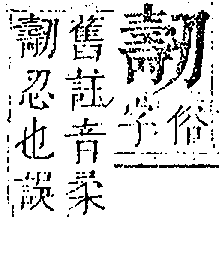 俗字
舊註音柔
忍也誤